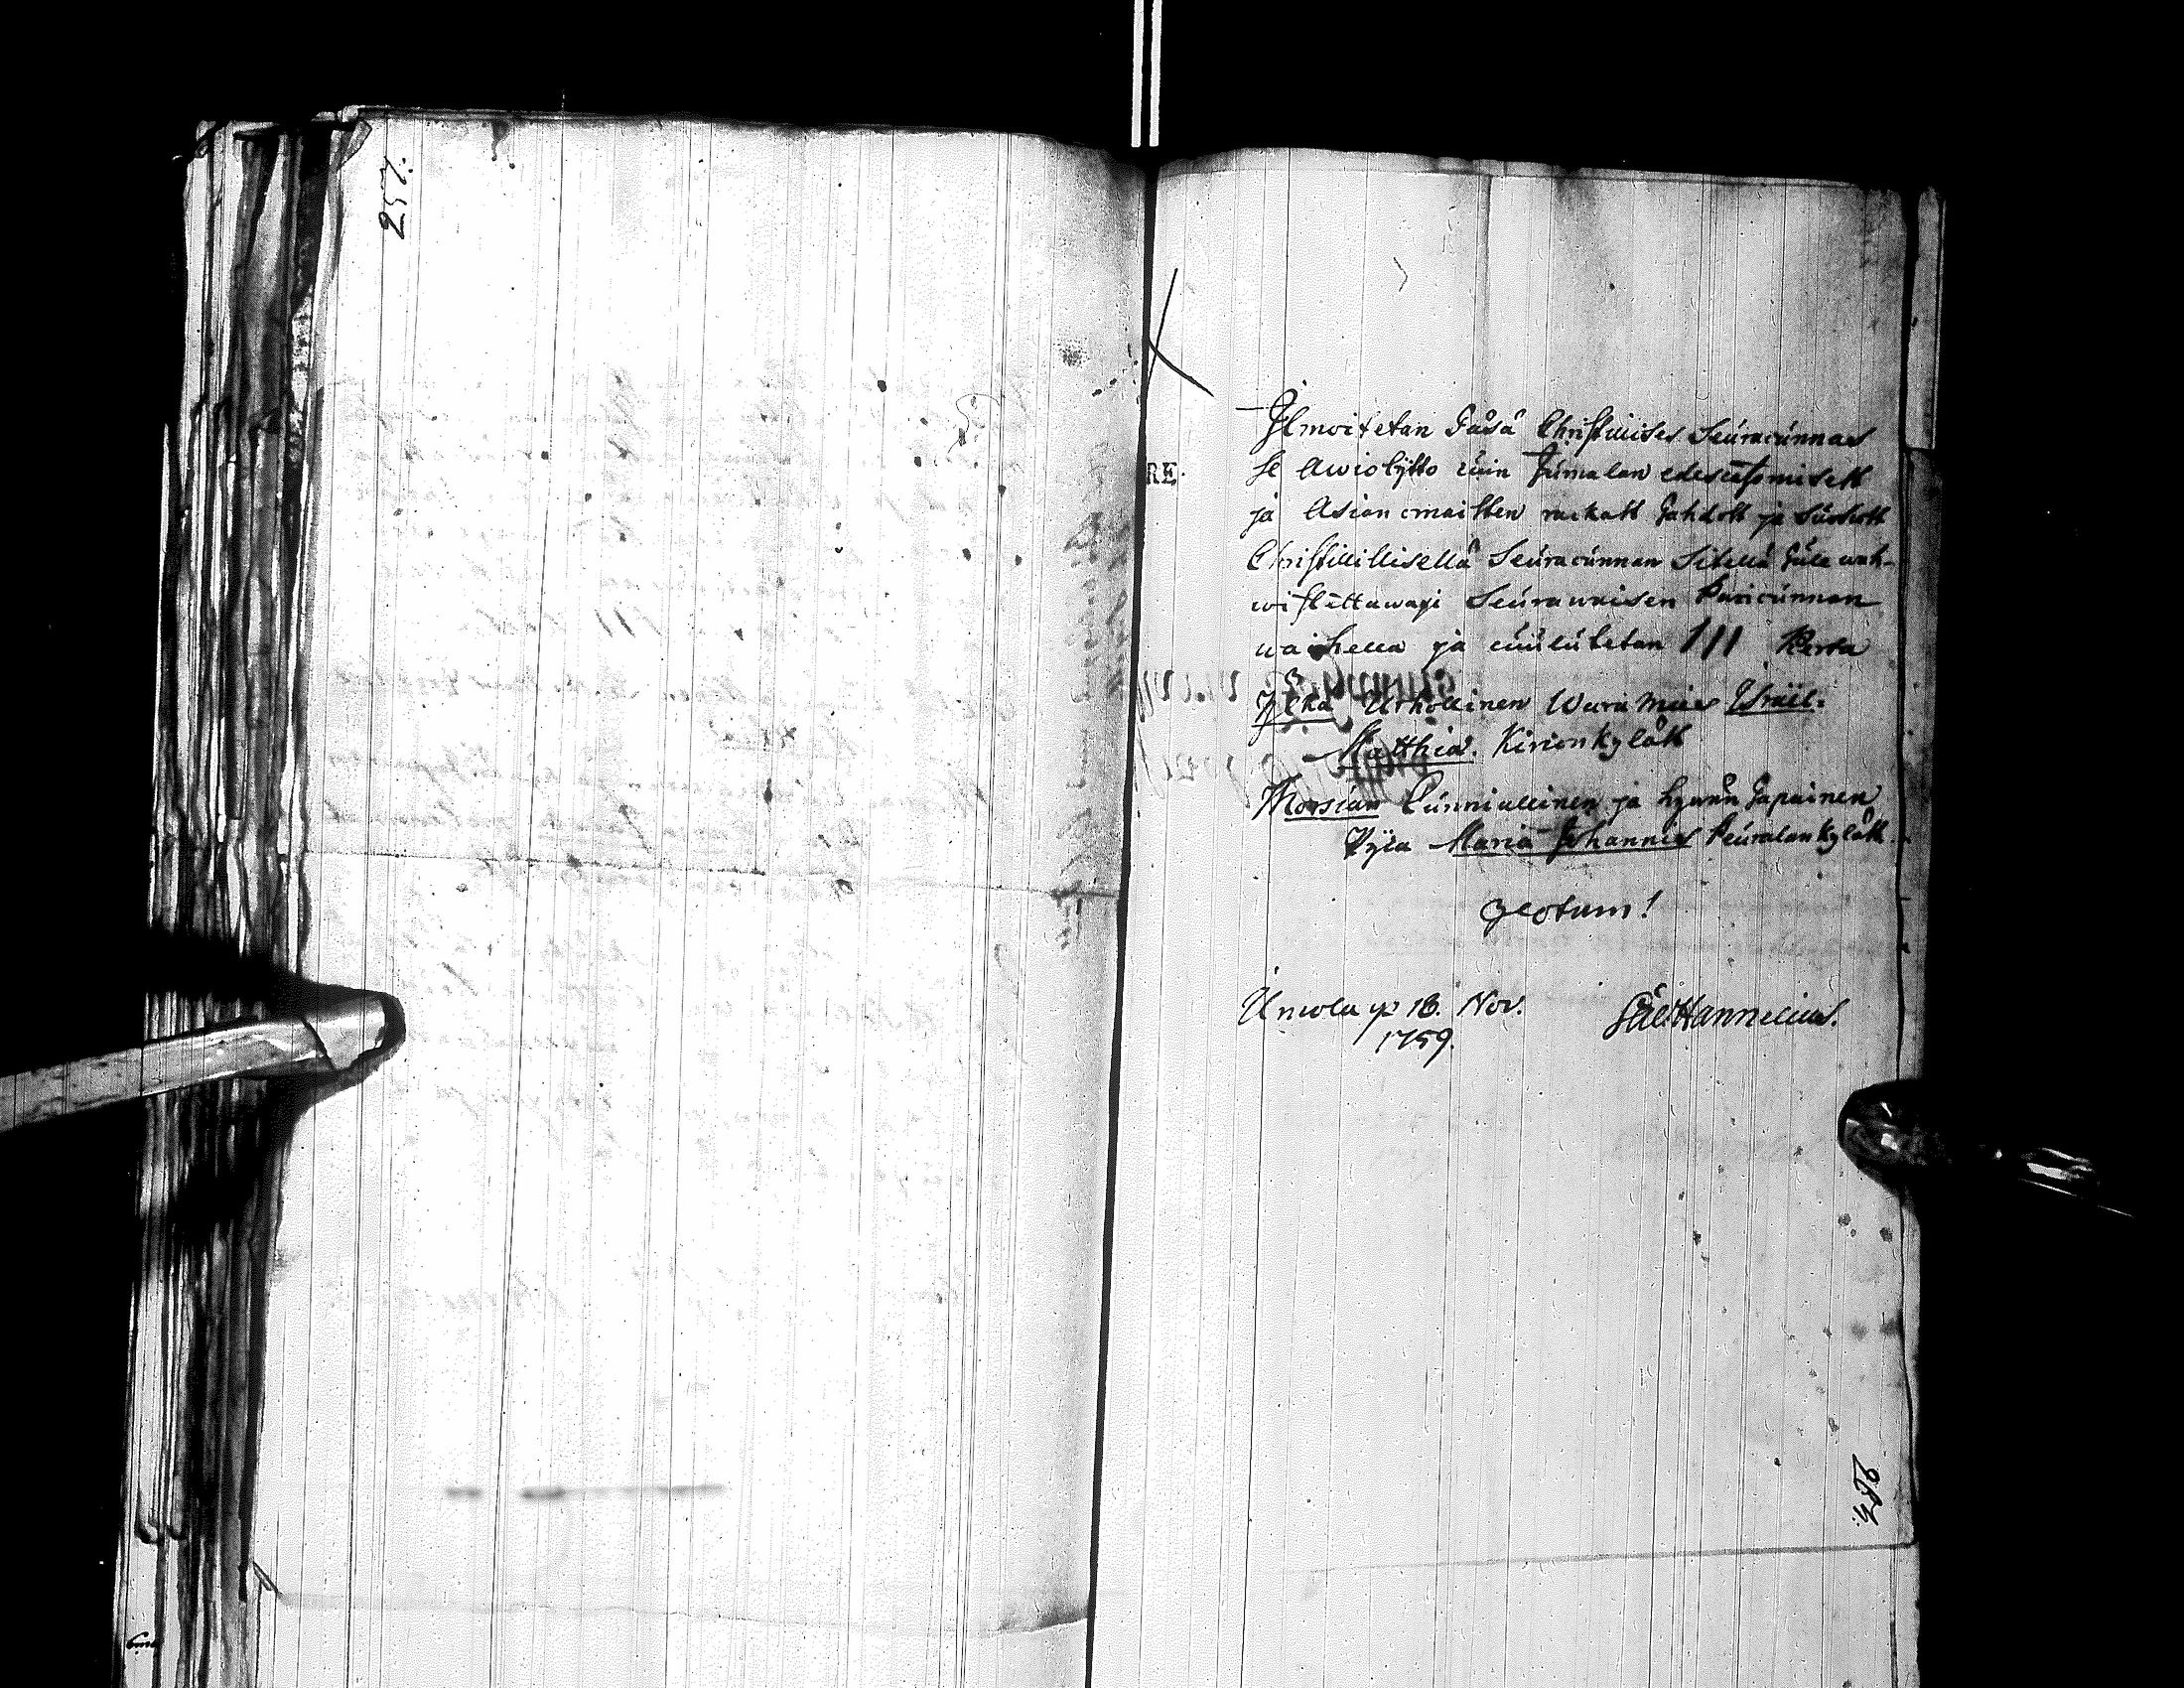 257.
RE.
Ilmoitetan Täsä Christillises Seuracunnas
se Awiokäsky cuin Jumalan edescatsomisell
ja Asianomaitten rackall tahdoll ja suosioll
Christillisellä Seuracunnan Sitellä tule wah-
wistettawaxi Seurawaisen Paricunnan
waihella ja cuulutetan III Kerta
Yljkä Urhollinen Wura Mies Israël
Matthiæ. Kirion kyläst
Morsian Cunniallinen ja hywän tapainen
Pijca Maria Johannis Peuralan kyläst.
Gratum!
Uncola p 18. Nov.
1759.
Hannelius.